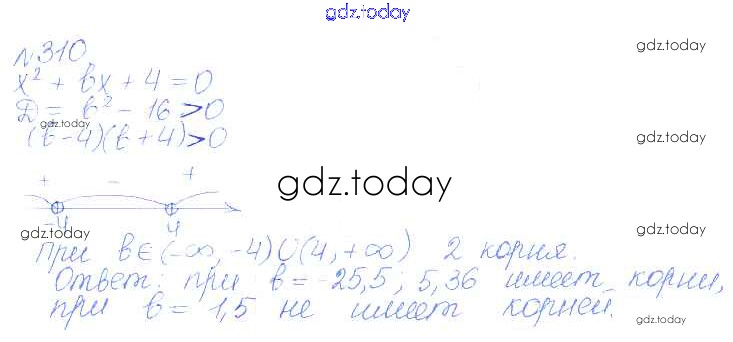 gdz.today
№310
gdz.today
x² + bx + 4 = 0
D = b² - 16 > 0
gdz.today
(b-4)(b+4)>0
gdz.today
+ - +
gdz.today
-4 4
gdz.today
gdz.today
при b∈(-∞,-4)∪(4,+∞) 2 корня.
Ответ: при b = -25,5; 5,36 имеет корни,
при b = 1,5 не имеет корней.
gdz.today